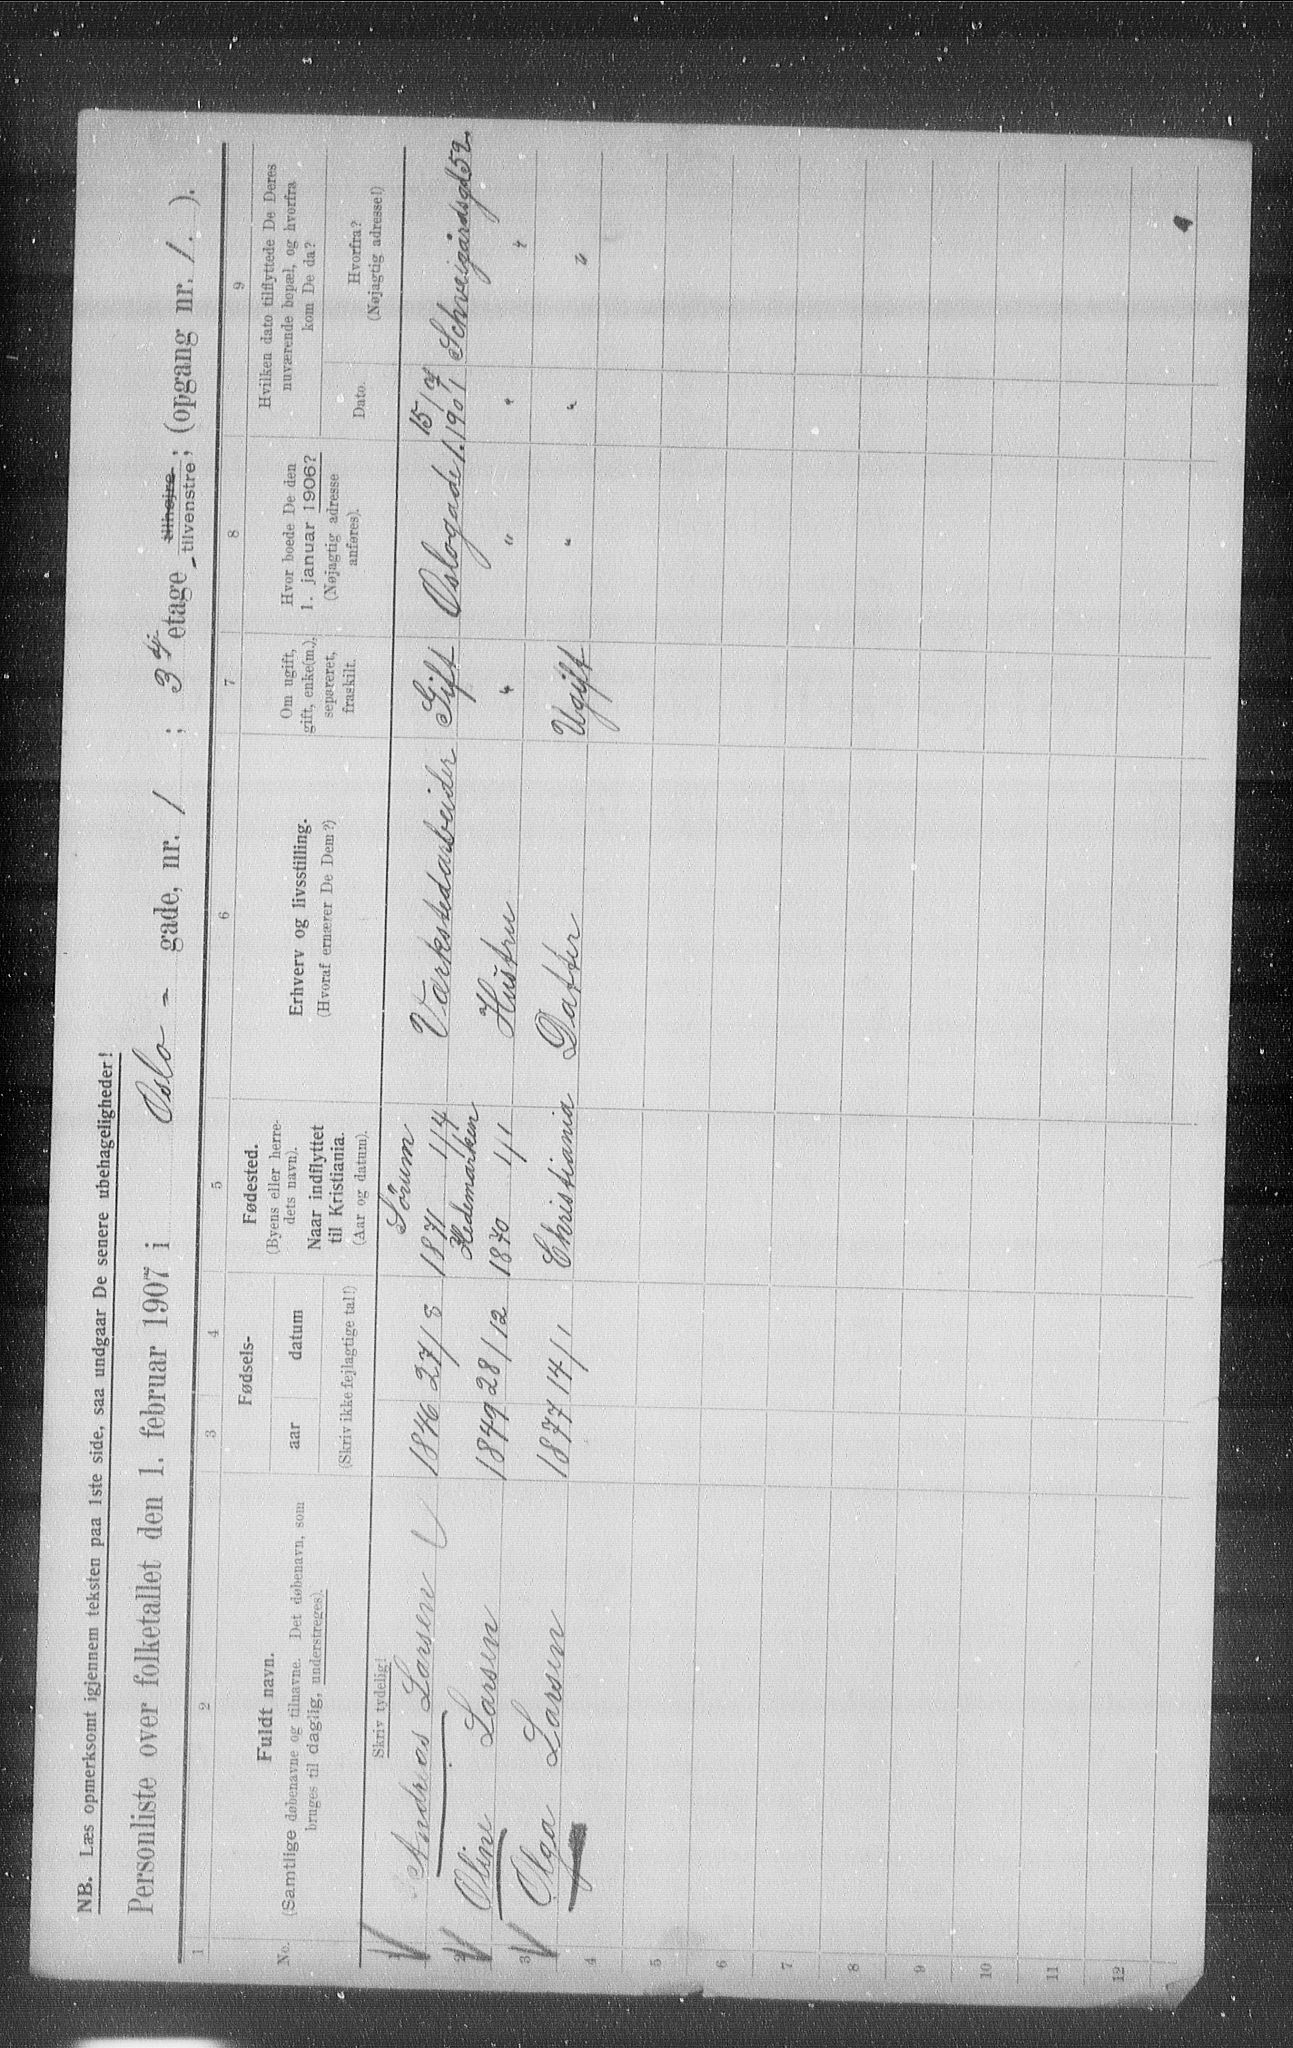 NB. Læs opmerksomt igjennem teksten paa 1ste side, saa undgaar De senere ubehageligheder!
Personliste over folketallet den 1. februar 1907 i Oslo - gade, nr. 1 ; 3dj etage tilhøjre ; (opgang nr. 1. ).
tilvenstre;
1 2 3 4 5 6 7 8 9
No.
Fuldt navn.
(Samtlige døbenavne og tilnavne. Det døbenavn, som
bruges til daglig, understreges).
Skriv tydelig!
Fødsels-
aar datum
(Skriv ikke fejlagtige tal!)
Fødested.
(Byens eller herre-
dets navn).
Naar indflyttet
til Kristiania.
(Aar og datum).
Erhverv og livsstilling.
(Hvoraf ernærer De Dem?)
Om ugift,
gift, enke(m.),
separeret,
fraskilt.
Hvor boede De den
1. januar 1906?
(Nøjagtig adresse
anføres).
Hvilken dato tilflyttede De Deres
nuværende bopæl, og hvorfra
kom De da?
Dato.
Hvorfra?
(Nøjagtig adresse!)
1 Andreas Larsen 1846 27/8 Sörum 1871 1/4 Værkstedarbeider Gift Oslogade 1. 15/4 1901 Schveigårdsgd 52.
2 Oline Larsen 1849 28/12 Hedemarken 1870 1/1 Hustru " " " "
3 Olga Larsen 1877 14/1 Christiania Datter Ugift " " "
4
5
6
7
8
9
10
11
12